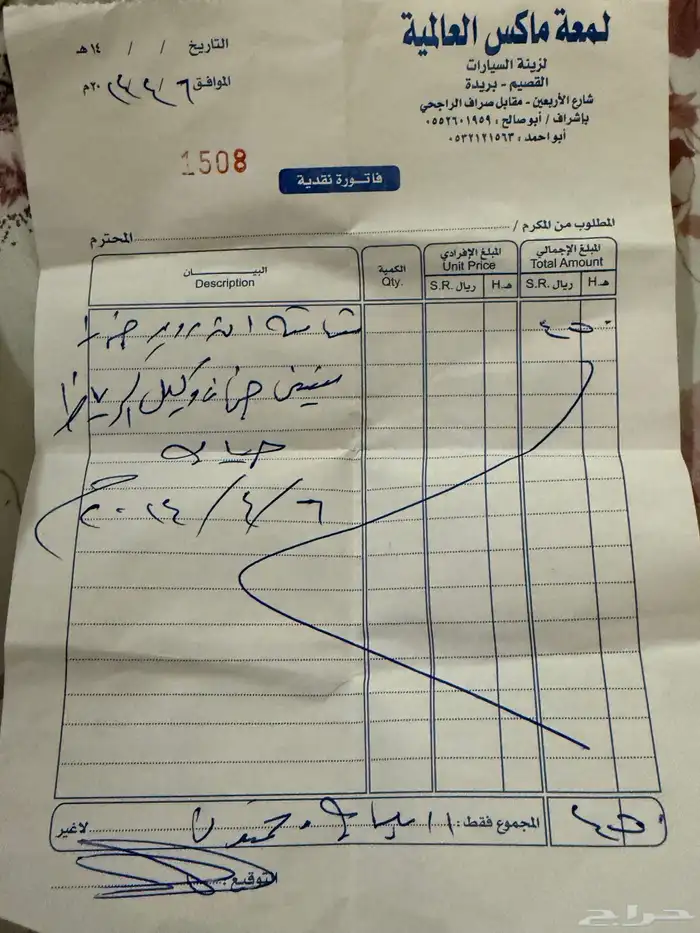 لمعة ماكس العالمية
لزينة السيارات
القصيم - بريدة
شارع الأربعين - مقابل صراف الراجحي
بإشراف / أبو صالح : ٠٥٥٢٦٠١٩٥٩
أبو احمد : ٠٥٣٢١٢١٥٦٣
التاريخ / / ١٤ هـ
الموافق ٦ / ٤ / ٢٠٢٤ م
1508
فاتورة نقدية
المطلوب من المكرم / المحترم
البيــان
Description
الكمية
Qty.
المبلغ الإفرادي
Unit Price
ريال S.R.
هـ H.
المبلغ الإجمالي
Total Amount
ريال S.R.
هـ H.
شاشة اندرويد ٤٥٠
سنتين ضمان وكيل
٦ / ٤ / ٢٠٢٤ م
المجموع فقط : اربعمائة وخمسون لاغير
٤٥٠
التوقيع :
حراج